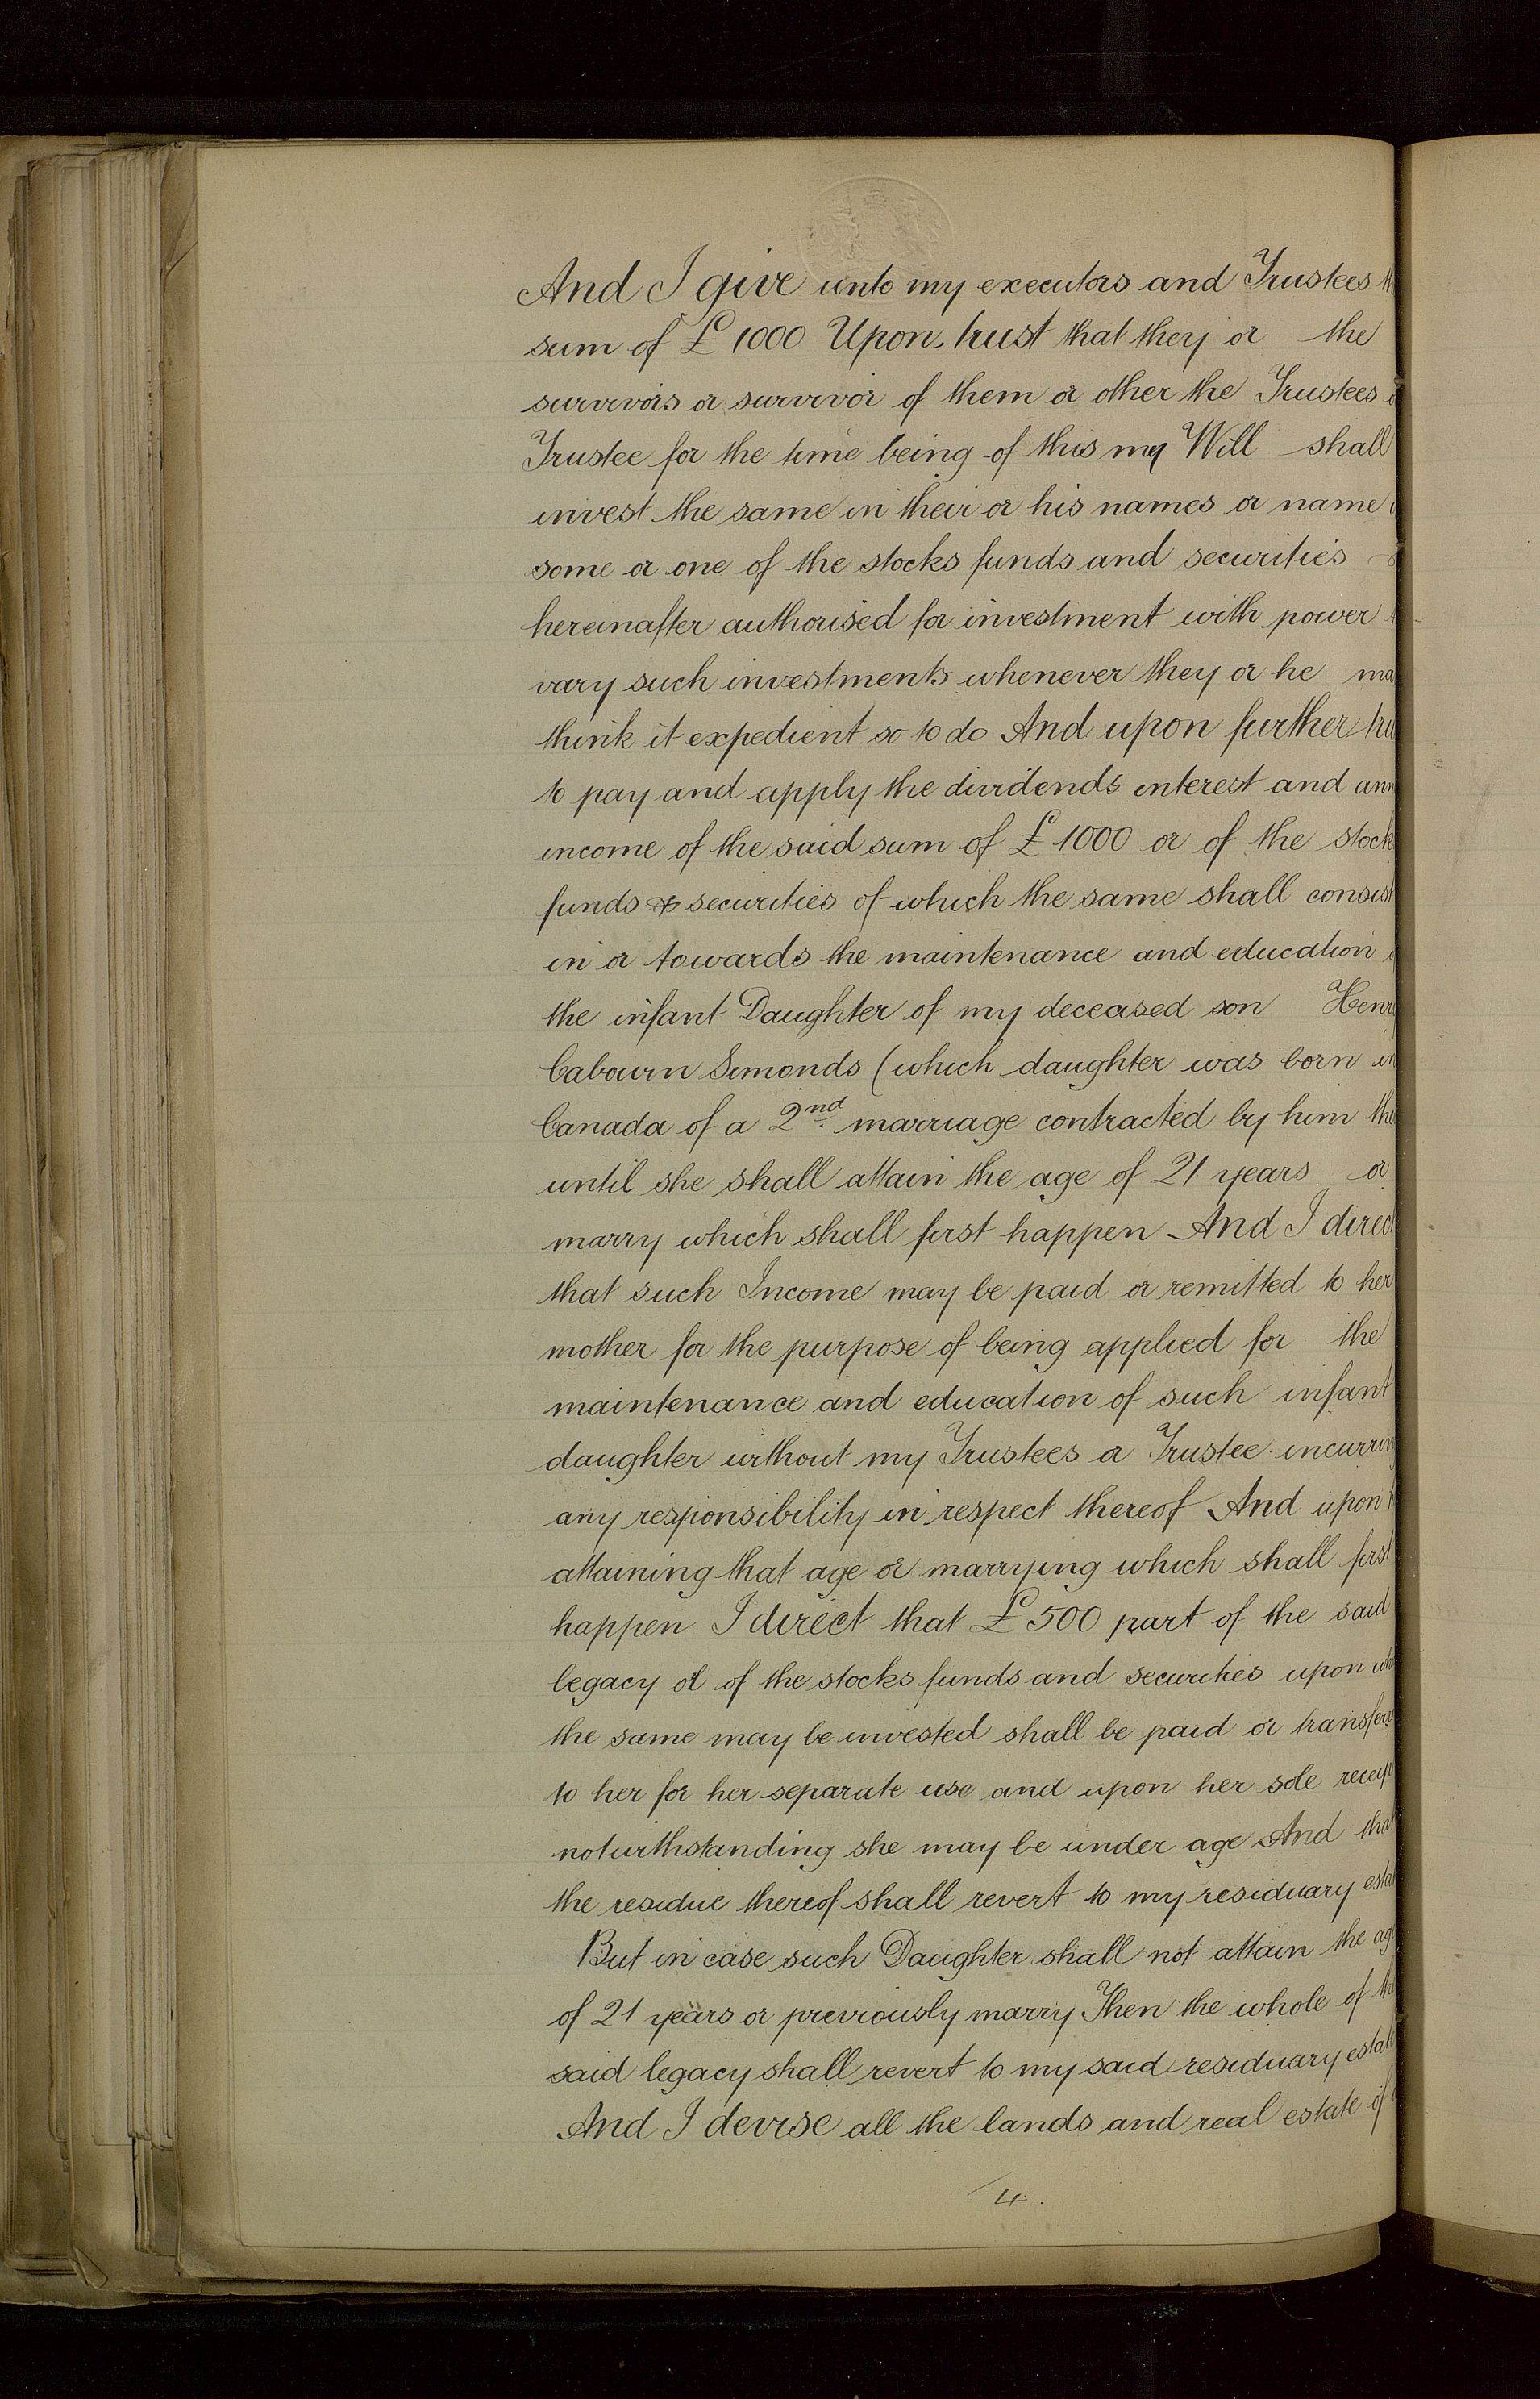 And I give unto my executors and Trustees
sum of £1000 Upon trust that they or the
survivors or survivor of them or other the Trustees
Trustee for the time being of this my Will shall
invest the same in their or his names or name
some or one of the stocks funds and securities
hereinafter authorised for investment with power
vary such investments whenever they or he ma
think it expedient so to do And upon further tru
to pay and apply the dividends interest and ann
income of the said sum of £1000 or of the stock
funds & securities of which the same shall consist
in or towards the maintenance and education
the infant Daughter of my deceased son Henr
Cabourn Simonds (which daughter was born in
Canada of a 2nd. marriage contracted by him the
until she shall attain the age of 21 years or
marry which shall first happen And I direct
that such Income may be paid or remitted to her
mother for the purpose of being applied for the
maintenance and education of such infant
daughter without my Trustees or Trustee incurrin
any responsibility in respect thereof And upon
attaining that age or marrying which shall first
happen I direct that £500 part of the said
legacy or of the stocks funds and securities upon wh
the same may be invested shall be paid or transfer
to her for her separate use and upon her sole receip
notwithstanding she may be under age And that
the residue thereof shall revert to my residuary esta
But in case such Daughter shall not attain the ag
of 21 years or previously marry Then the whole of the
said legacy shall revert to my said residuary estate
And I devise all the lands and real estate if
4.